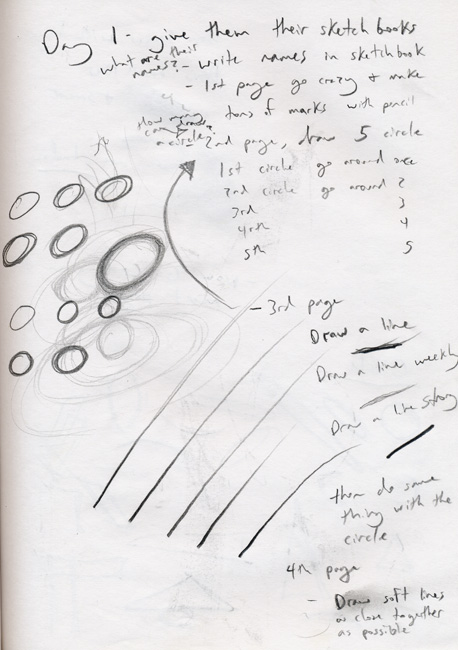 Day 1 - give them their sketchbooks
what are their names? - write names in sketchbook
- 1st page go crazy & make
tons of marks with pencil
How many
can draw
a circle?
2nd page, draw 5 circle
1st circle go around once
2nd circle go around 2
3rd 3
4rth 4
5th 5
- 3rd page
Draw a line
Draw a line weekly
Draw a line strong
then do same
thing with the
circle
4th page
- Draw soft lines
as close together
as possible